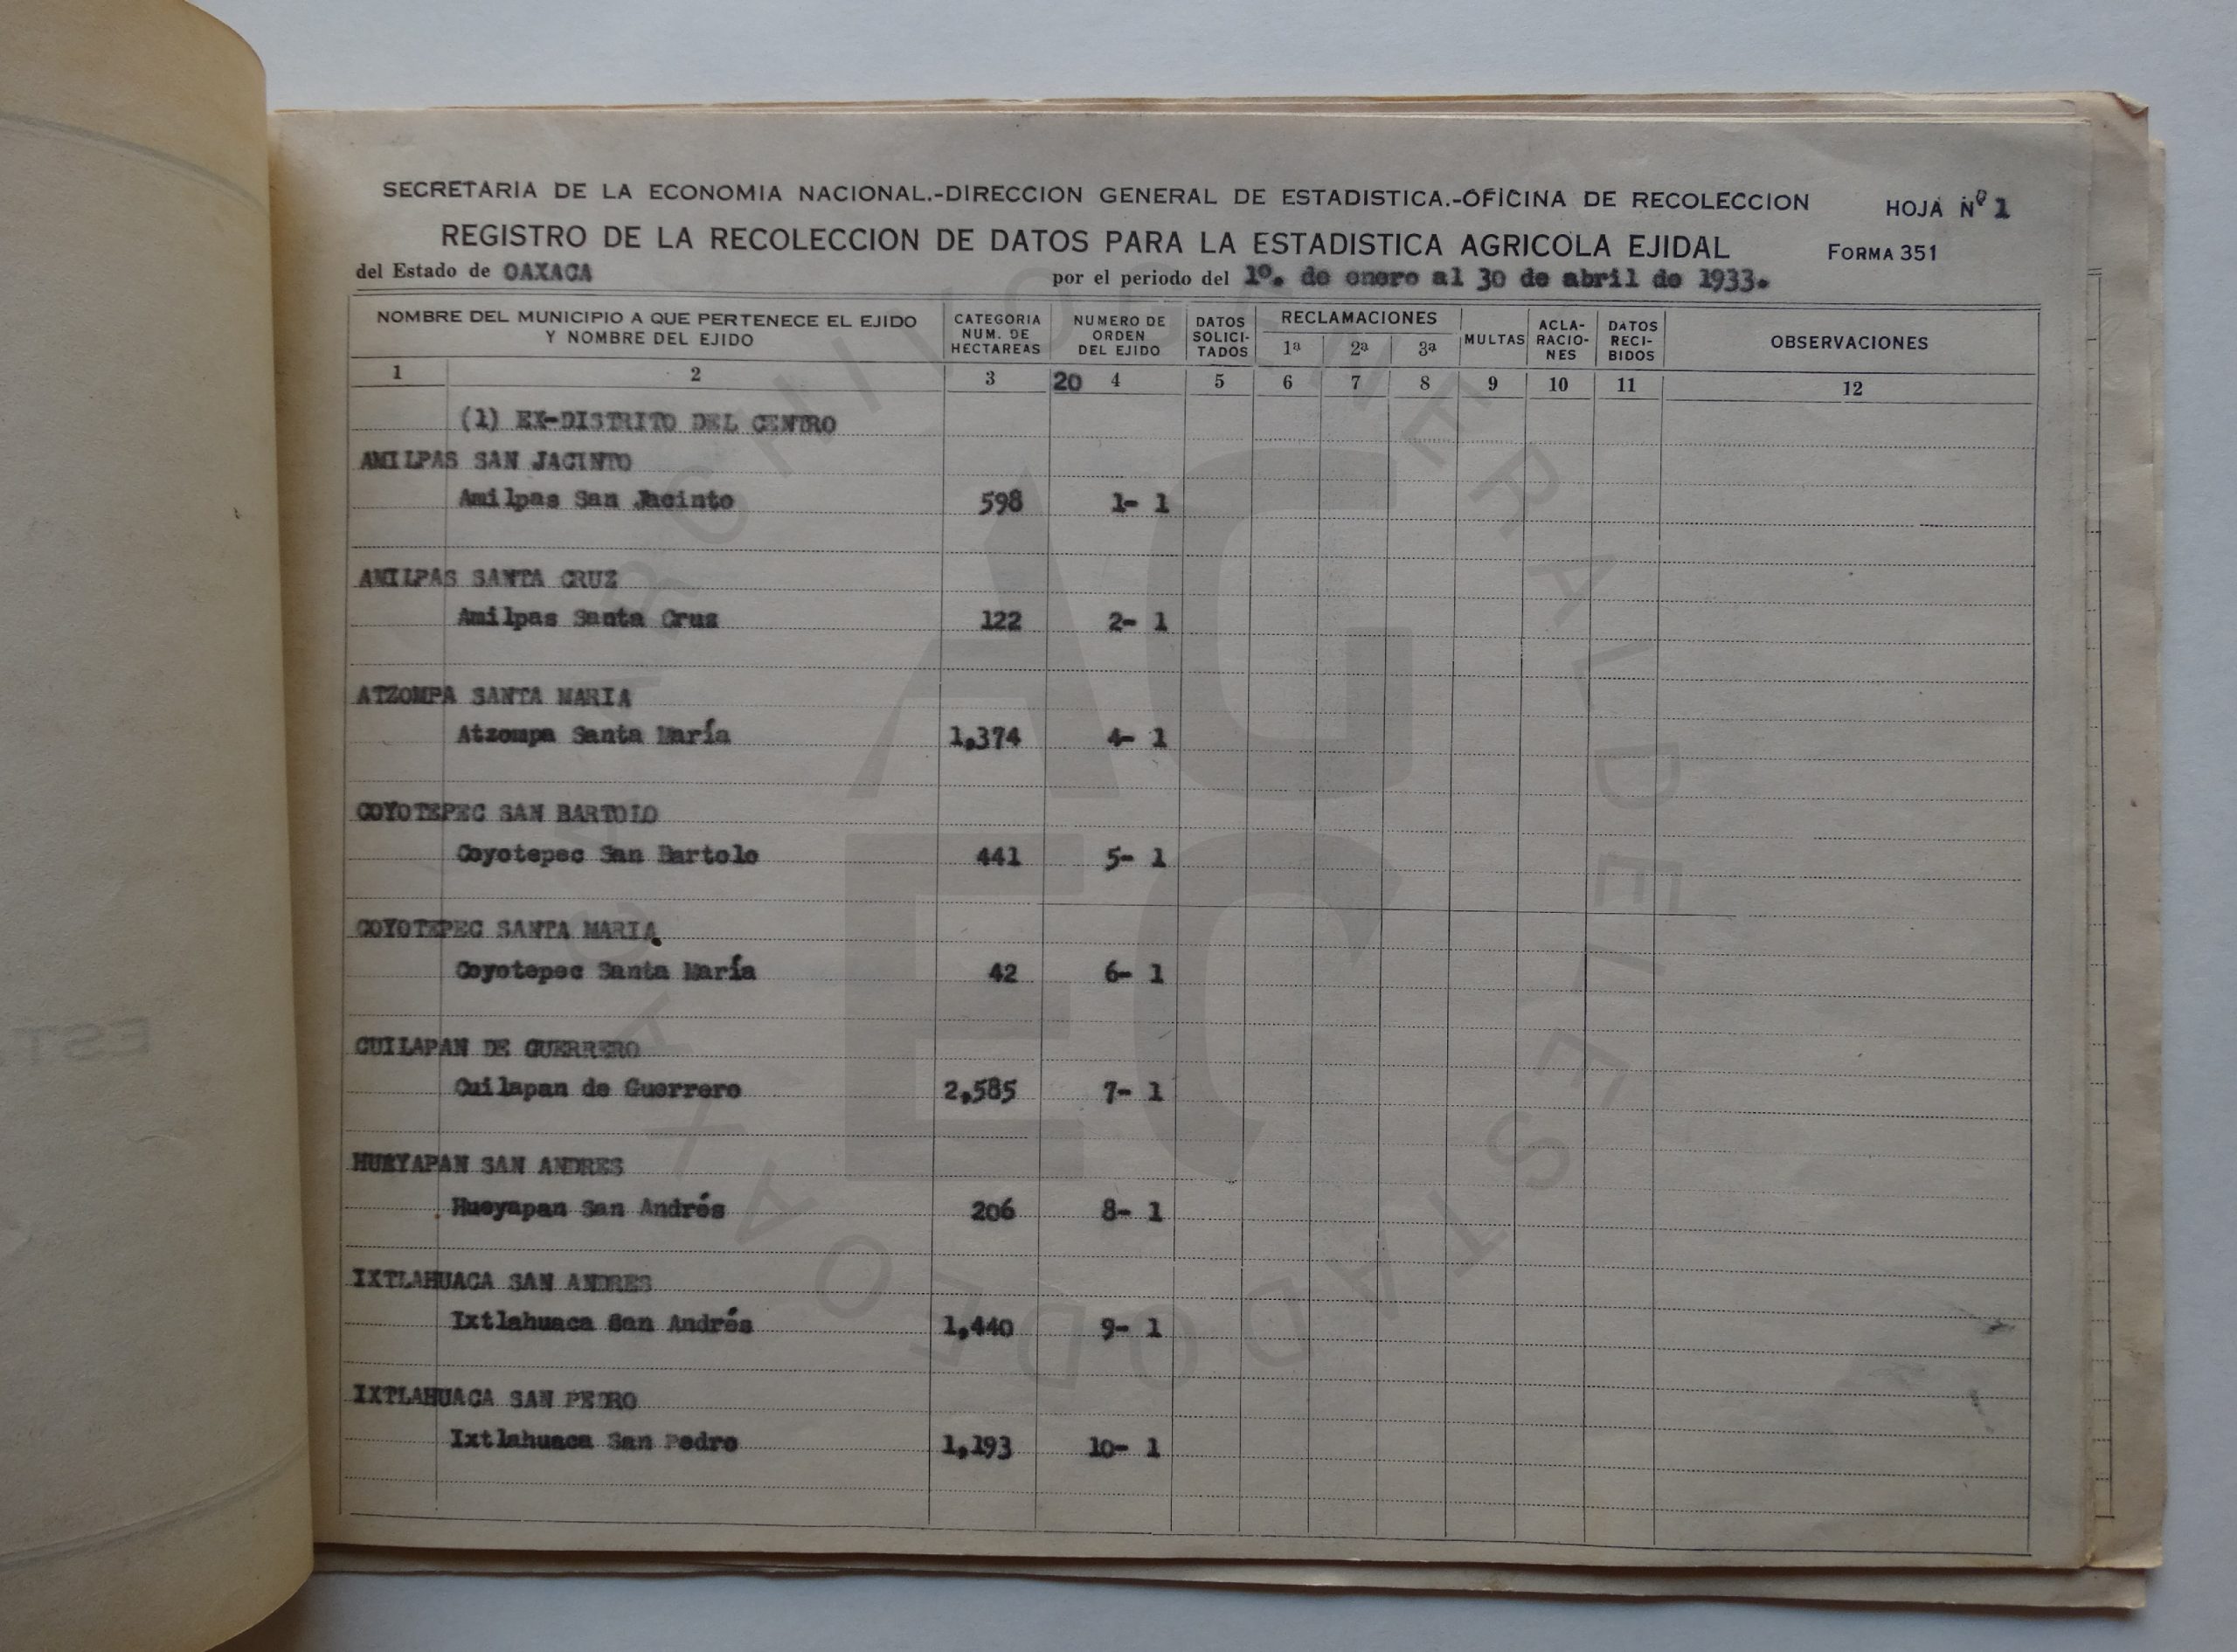 SECRETARIA DE LA ECONOMIA NACIONAL.-DIRECCION GENERAL DE ESTADISTICA.-OFICINA DE RECOLECCION HOJA Nº 1
REGISTRO DE LA RECOLECCION DE DATOS PARA LA ESTADISTICA AGRICOLA EJIDAL FORMA 351
del Estado de OAXACA por el periodo del 1º. de enero al 30 de abril de 1933.
NOMBRE DEL MUNICIPIO A QUE PERTENECE EL EJIDO
Y NOMBRE DEL EJIDO
CATEGORIA
NUM. DE
HECTAREAS
NUMERO DE
ORDEN
DEL EJIDO
DATOS
SOLICI-
TADOS
RECLAMACIONES
1ª 2ª 3ª
MULTAS
ACLA-
RACIO-
NES
DATOS
RECI-
BIDOS
OBSERVACIONES
1 2 3 20 4 5 6 7 8 9 10 11 12
(1) EX-DISTRITO DEL CENTRO
AMILPAS SAN JACINTO
Amilpas San Jacinto 598 1- 1
AMILPAS SANTA CRUZ
Amilpas Santa Cruz 122 2- 1
ATZOMPA SANTA MARIA
Atzompa Santa María 1,374 4- 1
COYOTEPEC SAN BARTOLO
Coyotepec San Bartolo 441 5- 1
COYOTEPEC SANTA MARIA
Coyotepec Santa María 42 6- 1
CUILAPAN DE GUERRERO
Cuilapan de Guerrero 2,585 7- 1
HUEYAPAN SAN ANDRES
Hueyapan San Andrés 206 8- 1
IXTLAHUACA SAN ANDRES
Ixtlahuaca San Andrés 1,440 9- 1
IXTLAHUACA SAN PEDRO
Ixtlahuaca San Pedro 1,193 10- 1
AG
EC
ARCHIVO GENERAL DEL ESTADO DE OAXACA
EST